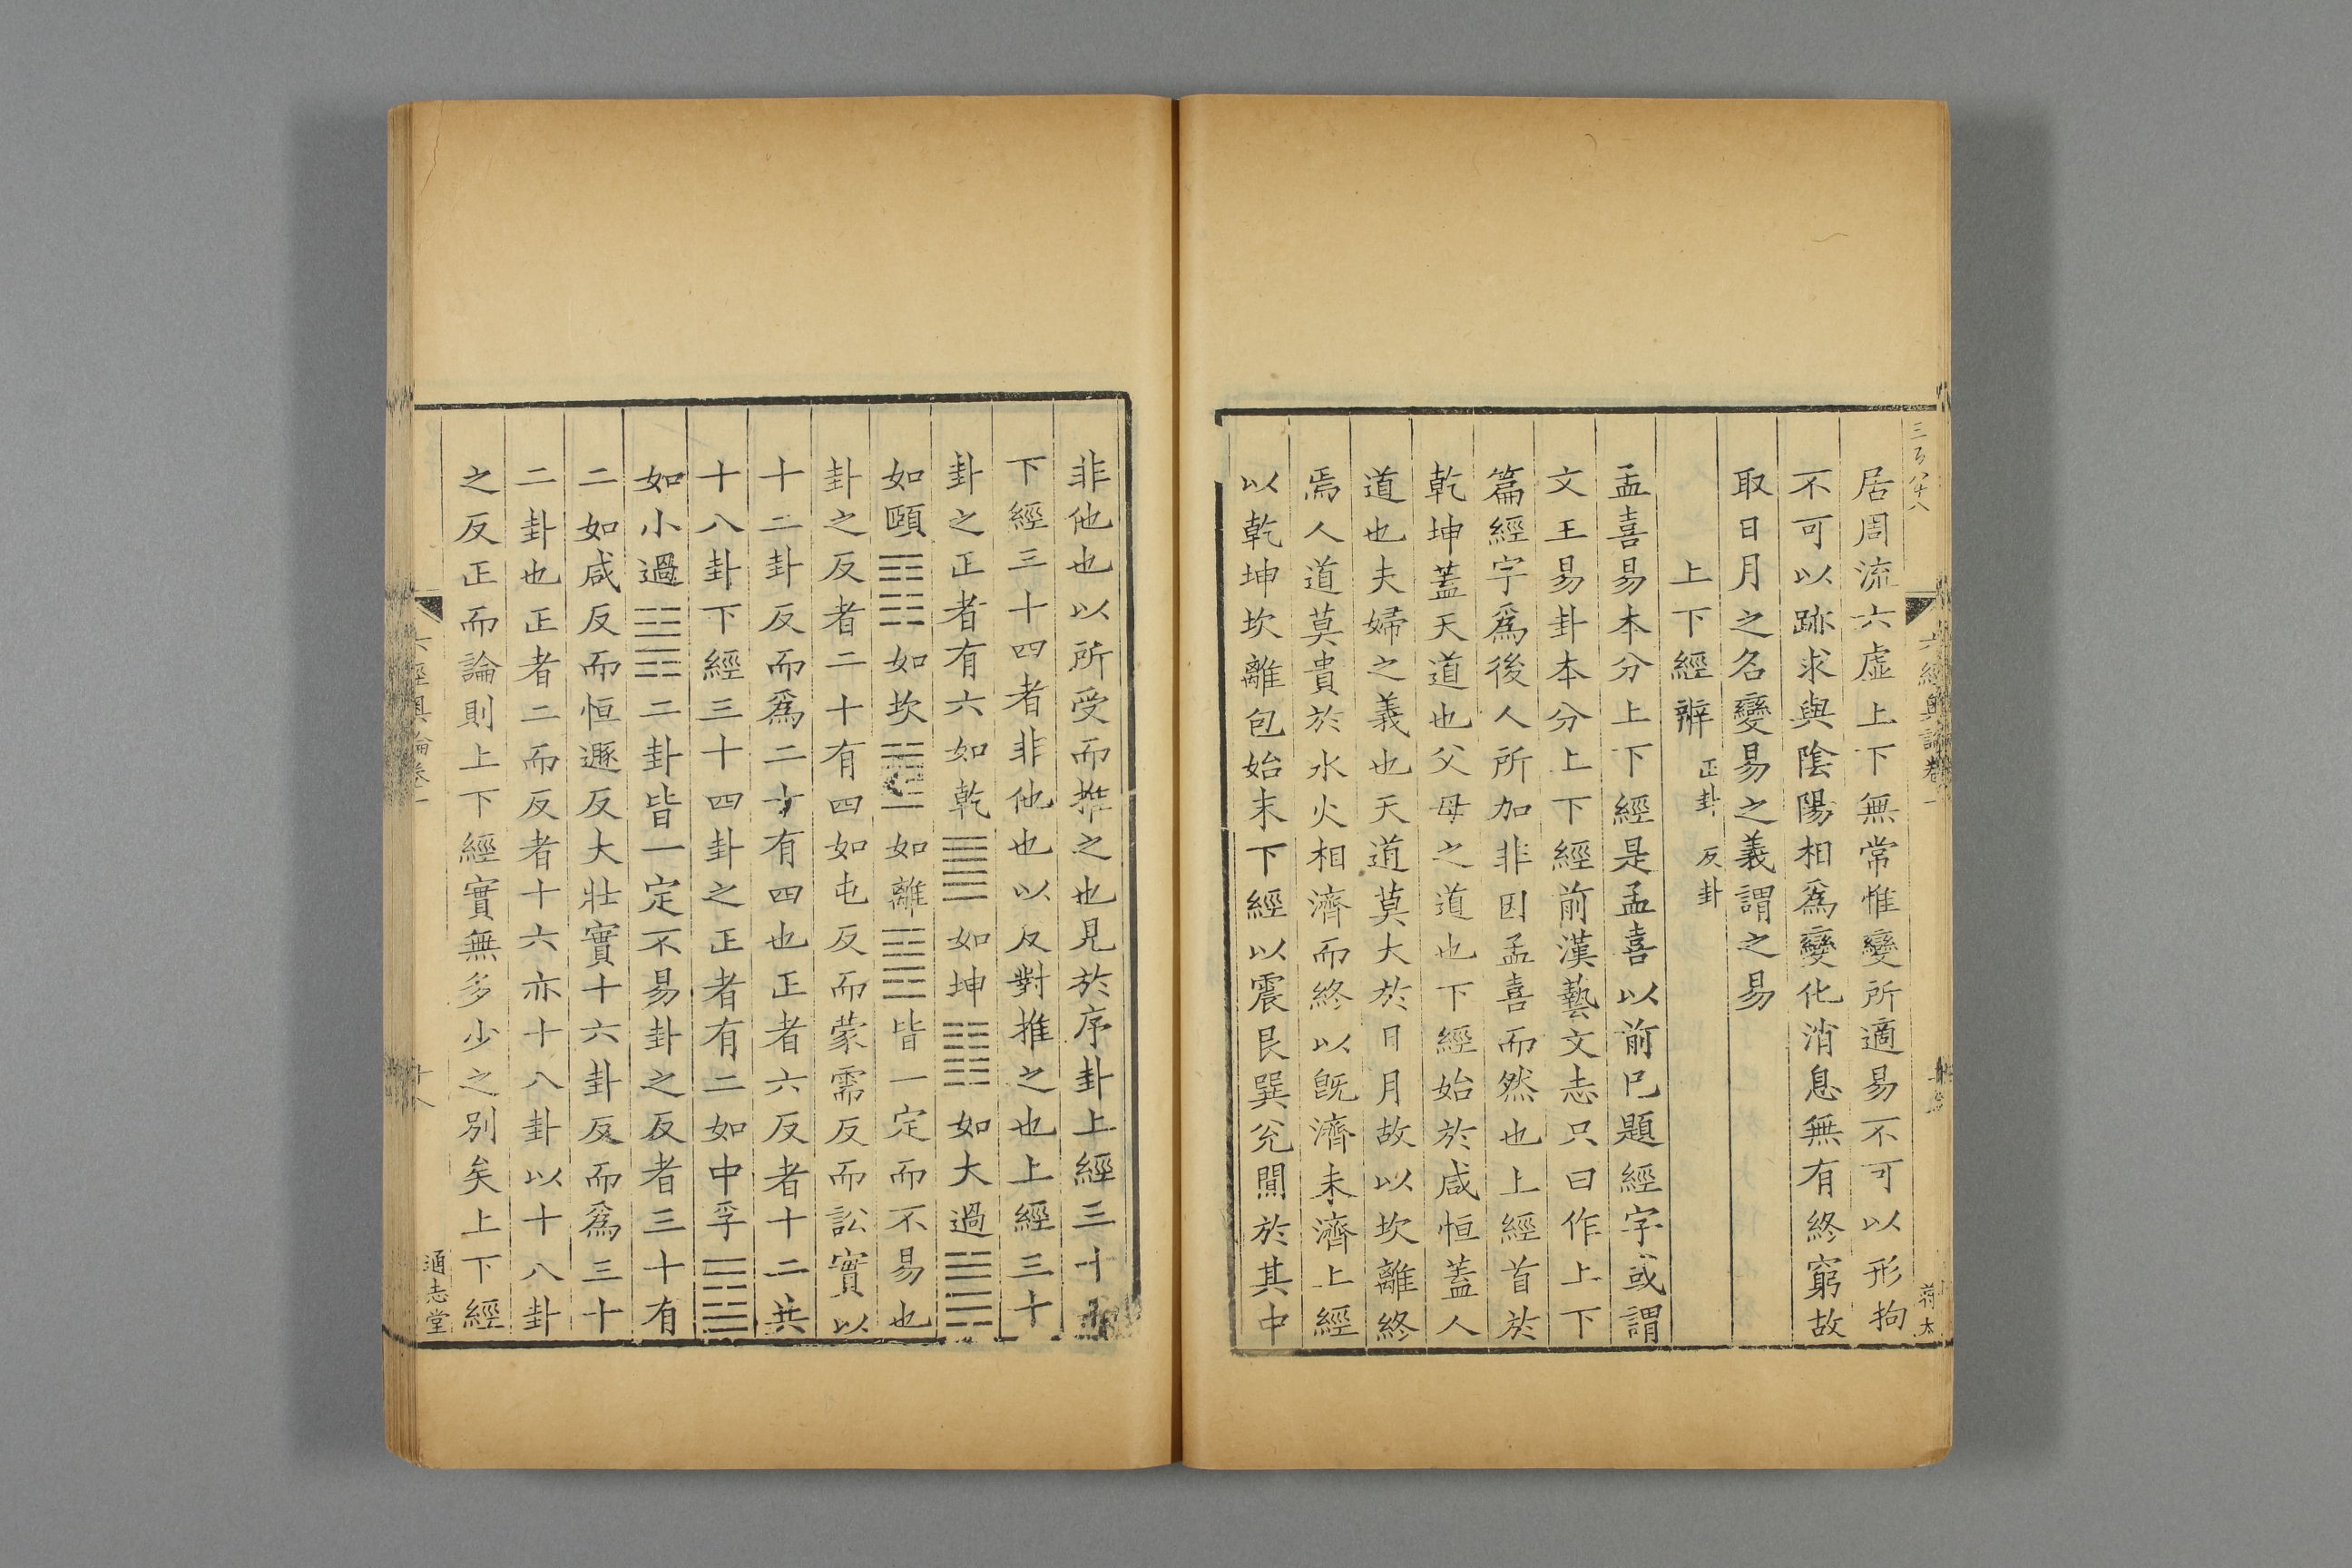 居周流六虛上下無常惟變所適易不可以形拘
不可以跡求與陰陽相爲變化消息無有終窮故
取日月之名變易之義謂之易
上下經辨 正卦 反卦
孟喜易本分上下經是孟喜以前已題經字或謂
文王易卦本分上下經前漢藝文志只曰作上下
篇經字爲後人所加非因孟喜而然也上經首於
乾坤蓋天道也父母之道也下經始於咸恒蓋人
道也夫婦之義也天道莫大於日月故以坎離終
焉人道莫貴於水火相濟而終以旣濟未濟上經
以乾坤坎離包始末下經以震艮巽兊閒於其中
非他也以所受而推之也見於序卦上經三十
下經三十四者非他也以反對推之也上經三十
卦之正者有六如乾䷀如坤䷁如大過䷛
如頤䷚如坎䷜如離䷝皆一定而不易也
卦之反者二十有四如屯反而蒙需反而訟實以
十二卦反而爲二十有四也正者六反者十二共
十八卦下經三十四卦之正者有二如中孚䷼
如小過䷽二卦皆一定不易卦之反者三十有
二如咸反而恒遯反大壯實十六卦反而爲三十
二卦也正者二而反者十六亦十八卦以十八卦
之反正而論則上下經實無多少之別矣上下經
六經奧論卷一
十八
通志堂